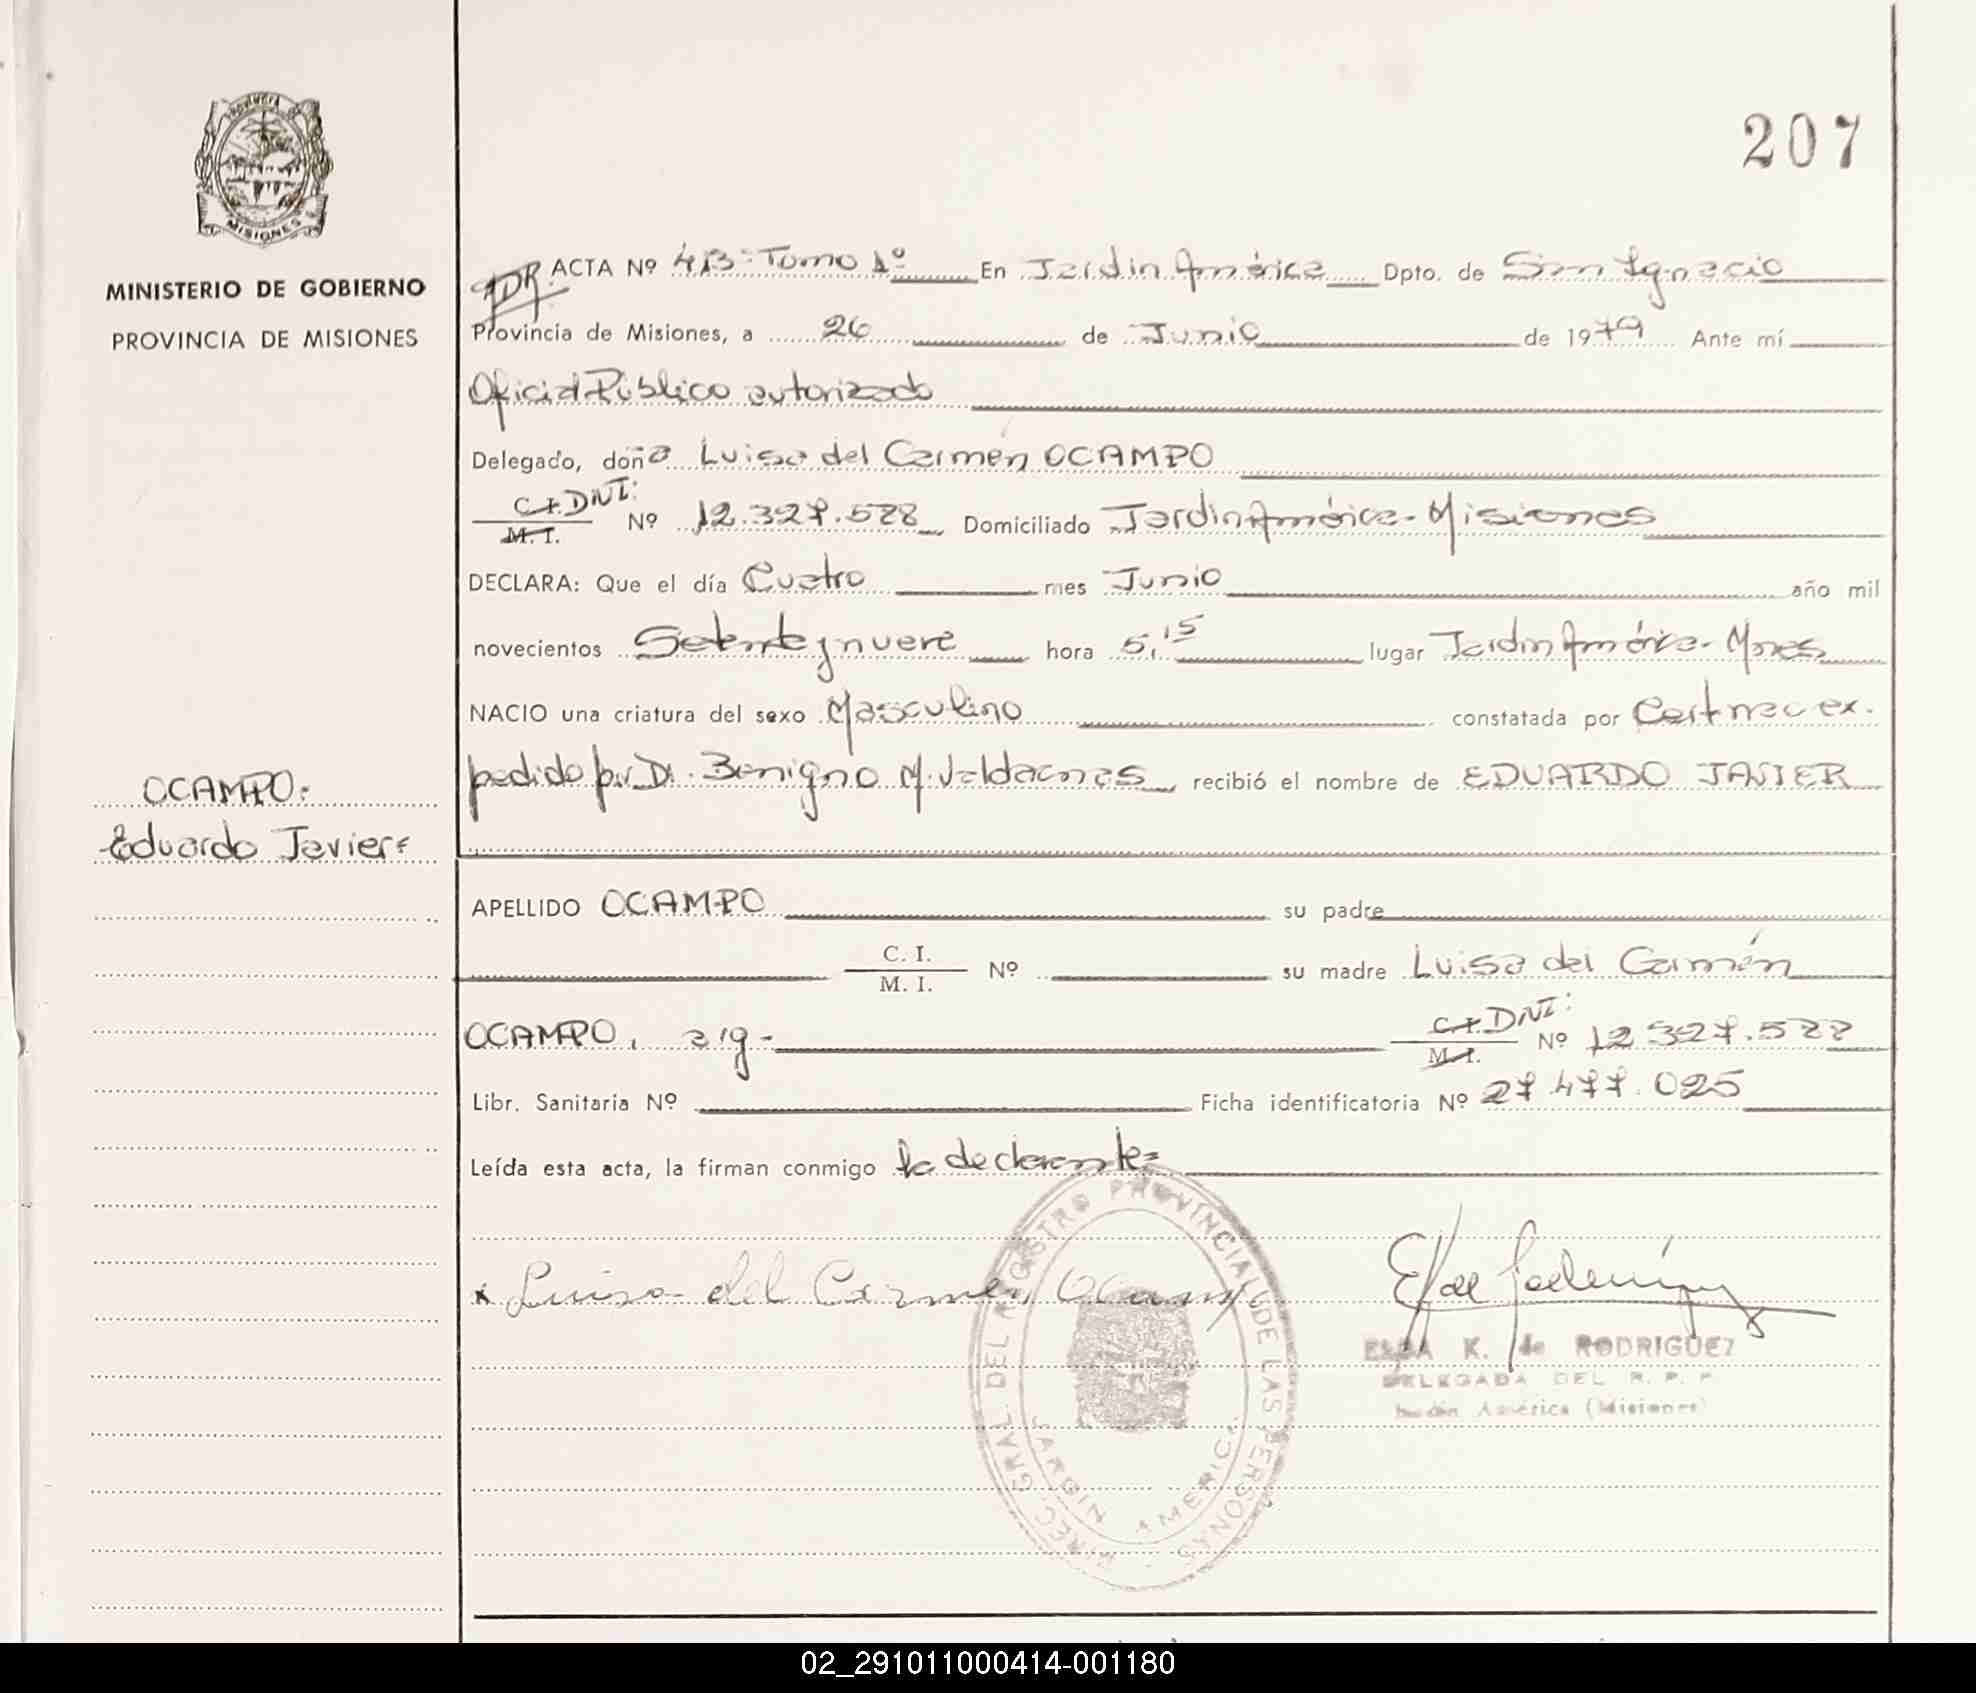 207
MISIONES
MINISTERIO DE GOBIERNO
PROVINCIA DE MISIONES
OCAMPO:
Eduardo Javier=
ADR.
ACTA Nº 413= Tomo 1º En Jardin América Dpto. de San Ignacio
Provincia de Misiones, a 26 de Junio de 1979 Ante mí
Oficial Público autorizado
Delegado, doña Luisa del Carmén OCAMPO
C.I. DNI:
M. I. Nº 12.327.588 Domiciliado Jardin América - Misiones
DECLARA: Que el día Cuatro mes Junio año mil
novecientos Setenta y nueve hora 5,15 lugar Jardin América - Mnes
NACIO una criatura del sexo Masculino constatada por Cert nac ex.
pedido por Dr. Benigno M. recibió el nombre de EDUARDO JAVIER
APELLIDO OCAMPO su padre
C. I.
M. I. Nº su madre Luisa del Carmén
OCAMPO, arg -
C.I. DNI:
M.I. Nº 12 327.588
Libr. Sanitaria Nº Ficha identificatoria Nº 27 477.025
Leída esta acta, la firman conmigo la declarante=
x Luisa del Carmen Ocampo
DIREC. GRAL. DEL REGISTRO PROVINCIAL DE LAS PERSONAS
JARDIN AMERICA
ELBA K. de RODRIGUEZ
DELEGADA DEL R. P. P.
Jardín América (Misiones)
02_291011000414-001180